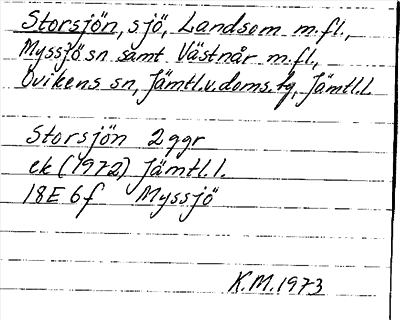 Storsjön, sjö, Landsom m.fl.,
Myssjö sn samt Västnår m.fl.,
Ovikens sn, Jämtl.v.doms.tg, Jämtl.L
Storsjön 2 ggr
ek (1972) Jämtl.l.
18E 6f Myssjö
K.M. 1973